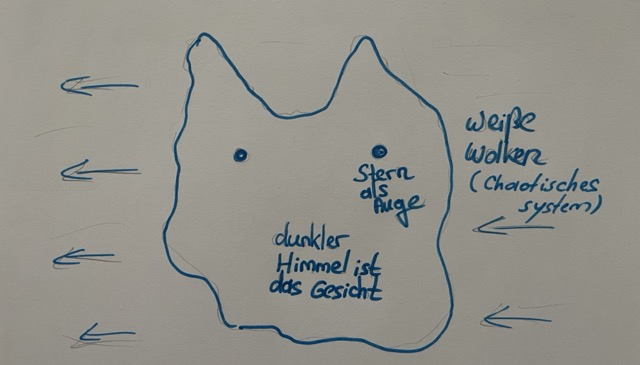 weiße
Wolken
(Chaotisches
system)
Stern
als
Auge
dunkler
Himmel ist
das Gesicht